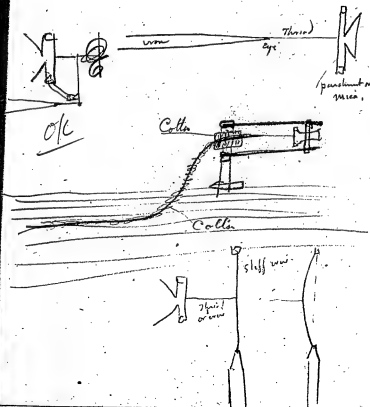 Thread
iron
Eye
parchment or
mica.
O/K
Cotton
Cotton
Stiff wire
Thread
or wire